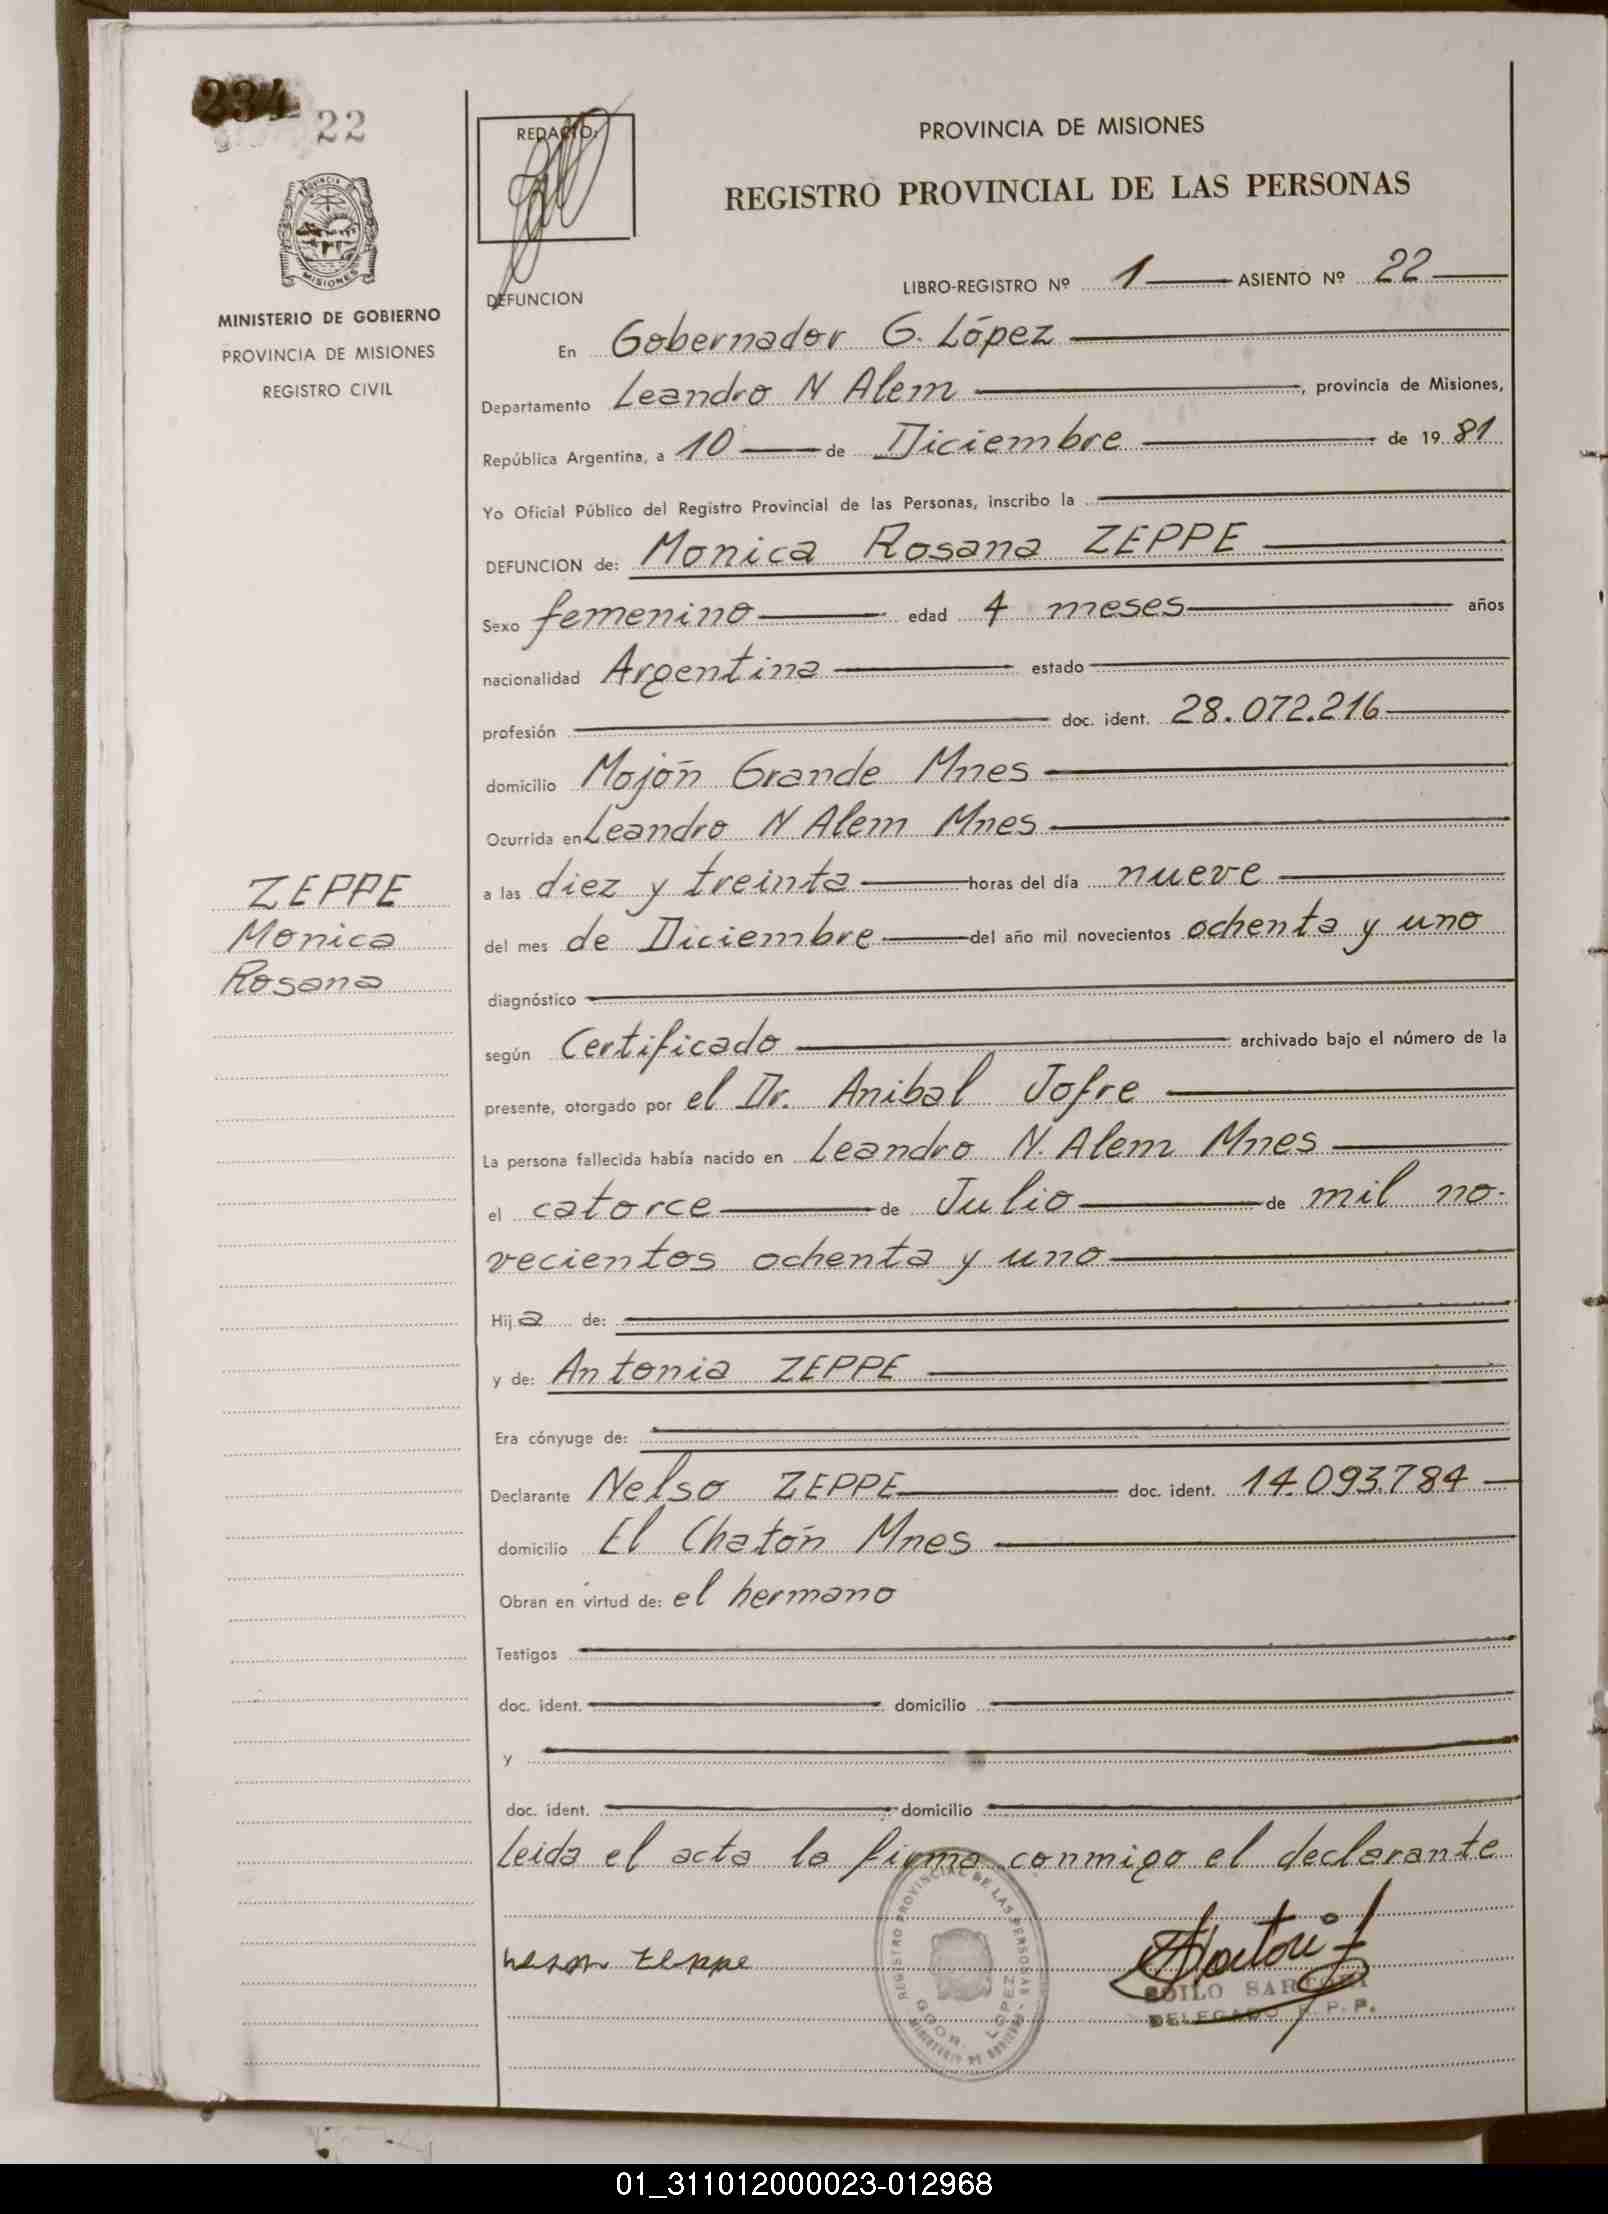 234
22
MINISTERIO DE GOBIERNO
PROVINCIA DE MISIONES
REGISTRO CIVIL
REDACTO:
PROVINCIA DE MISIONES
REGISTRO PROVINCIAL DE LAS PERSONAS
DEFUNCION
LIBRO-REGISTRO Nº 1 ASIENTO Nº 22
En Gobernador G. López
Departamento Leandro N Alem, provincia de Misiones,
República Argentina, a 10 de Diciembre de 19 81
Yo Oficial Público del Registro Provincial de las Personas, inscribo la
DEFUNCION de: Monica Rosana ZEPPE
Sexo femenino edad 4 meses años
nacionalidad Argentina estado
profesión doc. ident. 28.072.216
domicilio Mojón Grande Mnes
Ocurrida en Leandro N Alem Mnes
a las diez y treinta horas del día nueve
del mes de Diciembre del año mil novecientos ochenta y uno
ZEPPE
Monica
Rosana
diagnóstico
según Certificado archivado bajo el número de la
presente, otorgado por el Dr. Anibal Jofre
La persona fallecida había nacido en Leandro N. Alem Mnes
el catorce de Julio de mil no-
vecientos ochenta y uno
Hija de:
y de: Antonia ZEPPE
Era cónyuge de:
Declarante Nelso ZEPPE doc. ident. 14.093.784
domicilio El Chatón Mnes
Obran en virtud de: el hermano
Testigos
doc. ident. domicilio
y
doc. ident. domicilio
Leida el acta la firma conmigo el declarante
REGISTRO PROVINCIAL DE LAS PERSONAS
GDOR. LOPEZ
MINISTERIO DE GOBIERNO
zeppe
SARTORI
DELEGADO R.P.P.
01_311012000023-012968